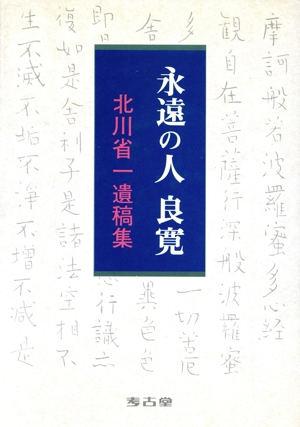 摩訶般若波羅蜜多心経
観自在菩薩行深般波羅蜜
多
一切苦厄
舎
異色色
即
行識
復如是舎利子是諸法空相不
生不滅不垢不浄不増不減是
永遠の人 良寛
北川省一遺稿集
考古堂